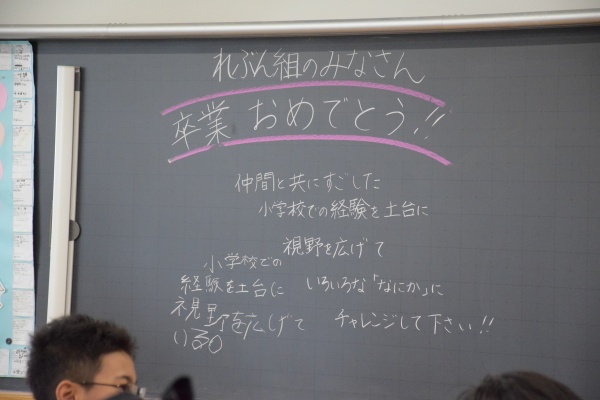 れぶん組のみなさん
卒業 おめでとう!!
仲間と共にすごした
小学校での経験を土台に
視野を広げて
いろいろな「なにか」に
チャレンジして下さい!!
小学校での
経験を土台に
視野を広げて
いろ